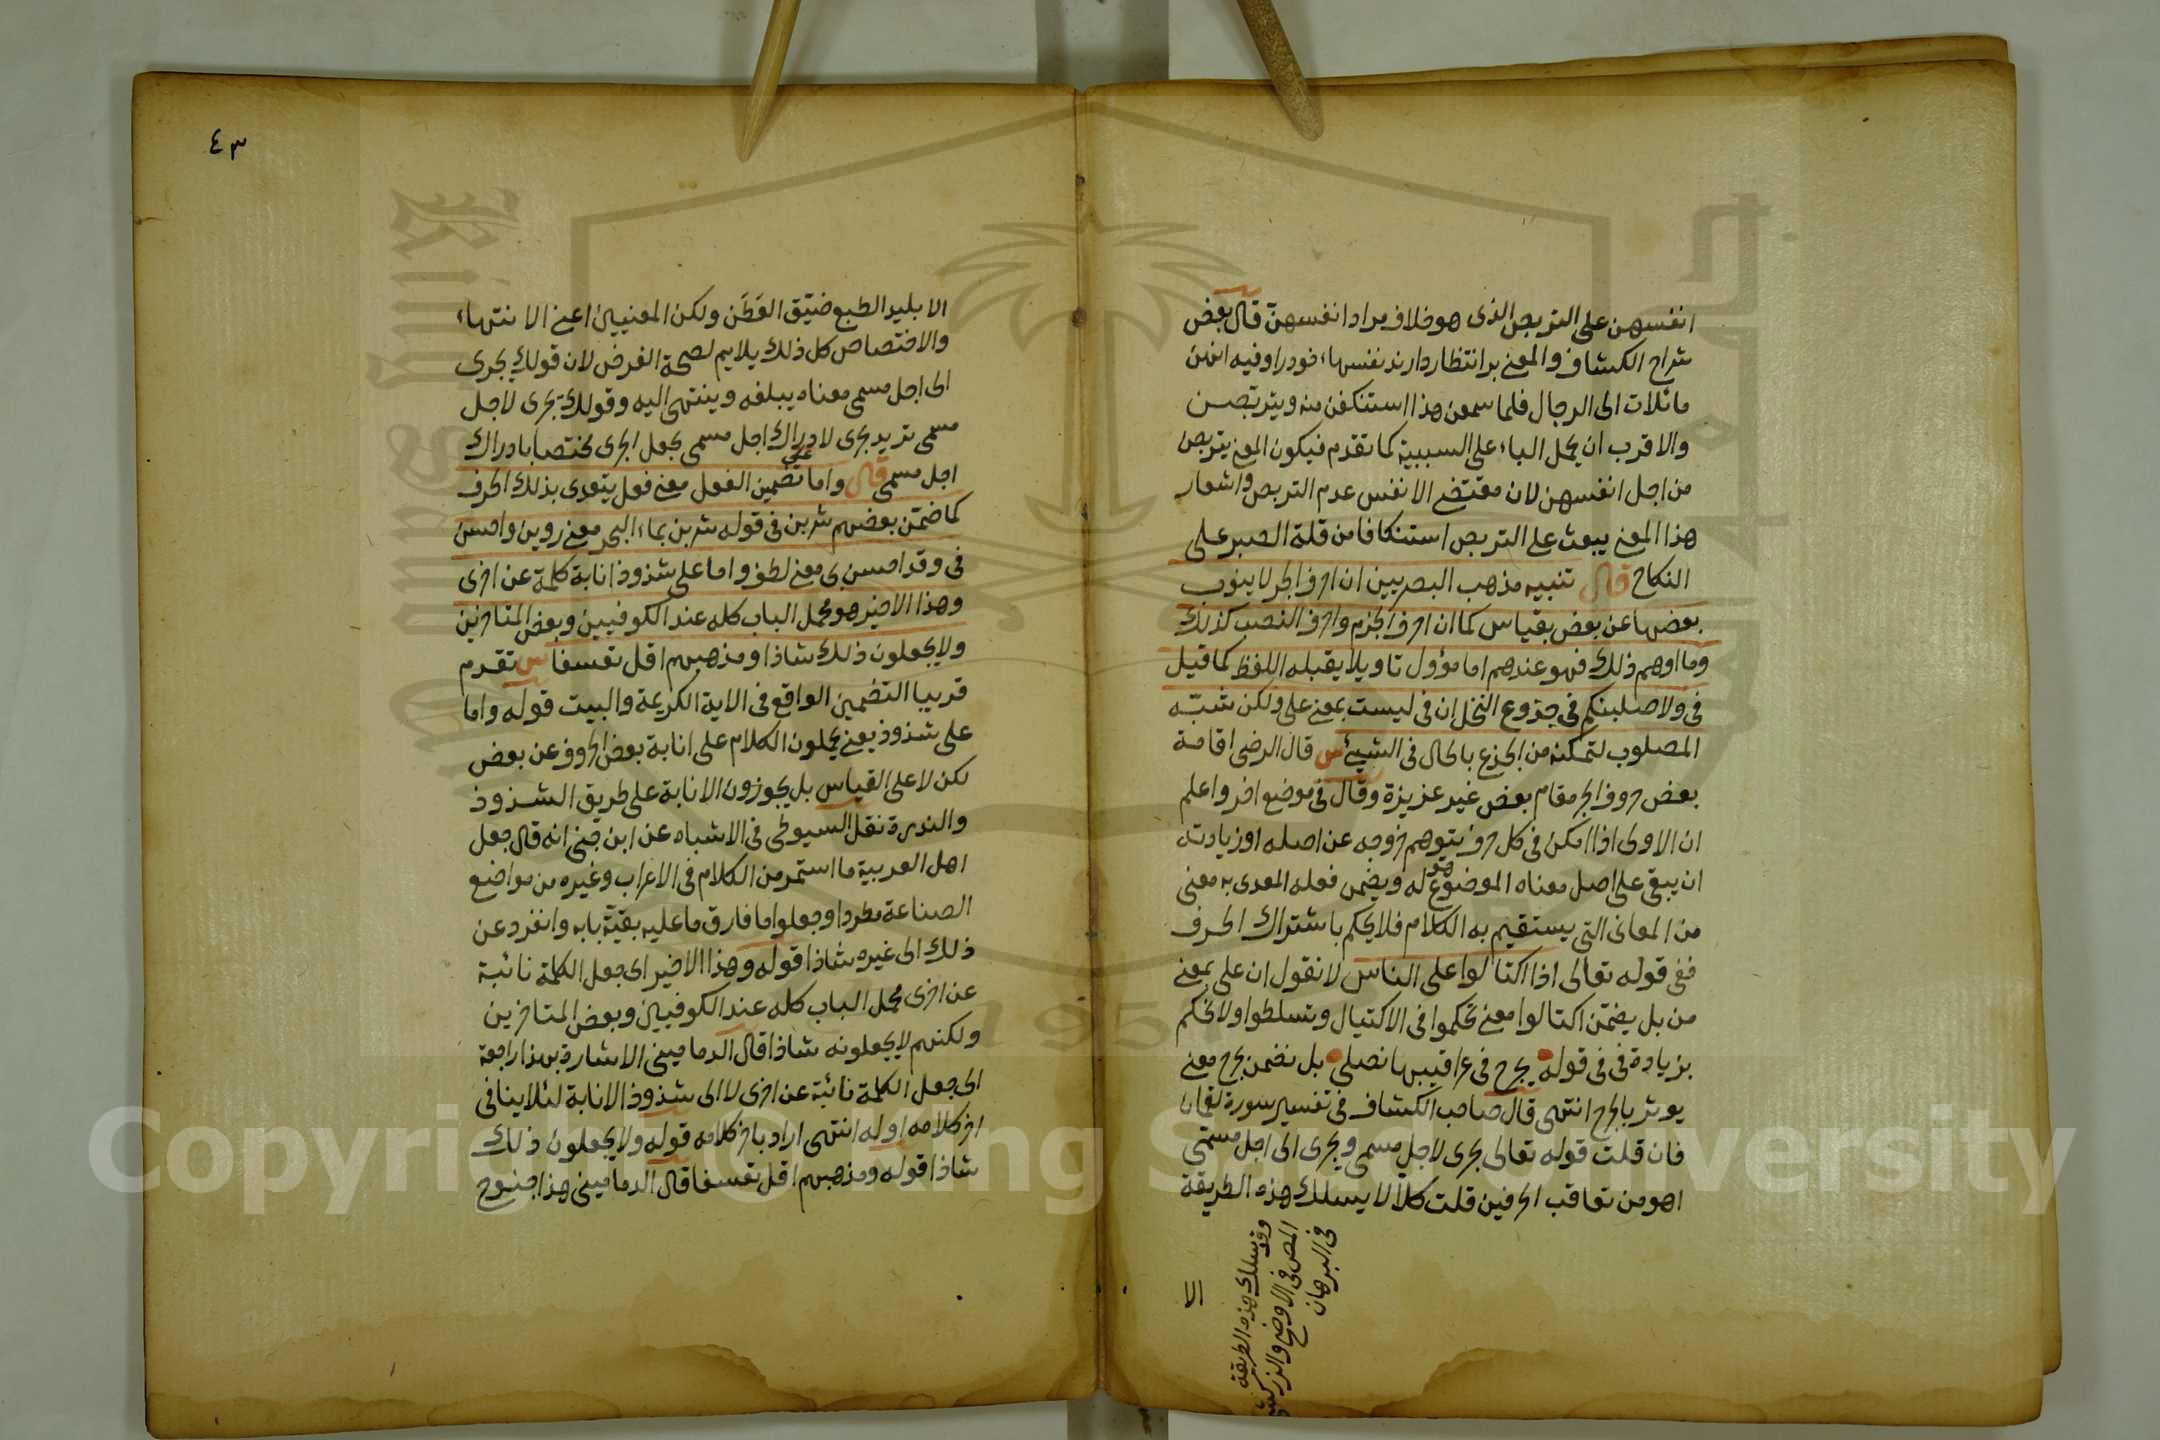 انفسهن على التربص الذى هو خلاف مراد انفسهن قال بعض
شراح الكشاف والمعنى بر انتظار دارند نفسهاء خود را وفيه انهن
مائلات الى الرجال فلما سمعن هذا استنكفن منه ويتربصن
والاقرب ان يحمل الباء على السببية كما تقدم فيكون المعنى يتربصن
من اجل انفسهن لان مقتضى الانفس عدم التربص واشعار
هذا المعنى يبعث على التربص استنكافا من قلة الصبر على
النكاح قال تنبيه مذهب البصريين ان احرف الجر لا ينوب
بعضها عن بعض بقياس كما ان احرف الجزم واحرف النصب كذلك
وما اوهم ذلك فهو عندهم اما مؤول تاويلا يقبله اللفظ كما قيل
فى ولاصلبنكم فى جذوع النخل ان فى ليست بمعنى على ولكن شبّه
المصلوب لتمكنه من الجذع بالحال فى الشيئ س قال الرضى اقامة
بعض حروف الجر مقام بعض غير عزيزة وقال فى موضع اخر واعلم
ان الاولى اذا امكن فى كل حرف يتوهم خروجه عن اصله او زيادته
ان يبقى على اصل معناه الموضوع هو له ويضمن فعله المعدى به معنى
من المعانى التى يستقيم به الكلام فلا يحكم باشتراك الحرف
ففى قوله تعالى اذا اكتالوا على الناس لا نقول ان على بمعنى
من بل يضمّن اكتالوا معنى تحكموا فى الاكتيال وتسلطوا ولا نحكم
بزيادة فى فى قوله يجرح فى عراقيبها نصلى بل نضمن يجرح معنى
يوثر بالجرح انتهى قال صاحب الكشاف فى تفسير سورة لقمان
فان قلت قوله تعالى يجرى لاجل مسمى ويجرى الى اجل مسمّى
اهو من تعاقب الحرفين قلت كلا لا يسلك هذه الطريقة
الا
وقد سلك هذه الطريقة
المص فى الاوضح والزركشى
فى البرهان
٤٣
الا بليد الطبع ضيّق العَطَن ولكن المعنيين اعنى الانتهاء
والاختصاص كل ذلك يلايم لصحة الغرض لان قولك يجرى
الى اجل مسمى معناه يبلغه وينتهى اليه وقولك يجرى لاجل
مسمى تريد يجرى لادراك اجل مسمى بجعل الجرى مختصا بادراك
اجل مسمى قال واما على تضمين الفعل معنى فعل يتعدى بذلك الحرف
كما ضمّن بعضهم شربن فى قوله شربن بماء البحر معنى روين واحسن
فى وقد احسن بى معنى لطف واما على شذوذ انابة كلمة عن اخرى
وهذا الاخير هو محمل الباب كله عند الكوفيين وبعض المتاخرين
ولا يجعلون ذلك شاذا ومذهبهم اقل تعسفا س تقدم
قريبا التضمين الواقع فى الاية الكريمة والبيت قوله واما
على شذوذ يعنى يحملون الكلام على انابة بعض الحروف عن بعض
لكن لا على القياس بل يجوزون الانابة على طريق الشذوذ
والندرة نقل السيوطى فى الاشباه عن ابن جنى انه قال جعل
اهل العربية ما استمر من الكلام فى الاعراب وغيره من مواضع
الصناعة مطردا وجعلوا ما فارق ما عليه بقيّة بابه وانفرد عن
ذلك الى غيره شاذا قوله وهذا الاخير اى جعل الكلمة نائبة
عن اخرى محمل الباب كله عند الكوفيين وبعض المتاخرين
ولكنهم لا يجعلونه شاذا قال الدمامينى الاشارة بهذا راجعة
الى جعل الكلمة نائبة عن اخرى لا الى شذوذ الانابة لئلا ينافى
اخر كلامه اوله انتهى اراد باخر كلامه قوله ولا يجعلون ذلك
شاذا قوله ومذهبهم اقل تعسفا قال الدمامينى هذا جنوح
Copyright © King Saud University
1957